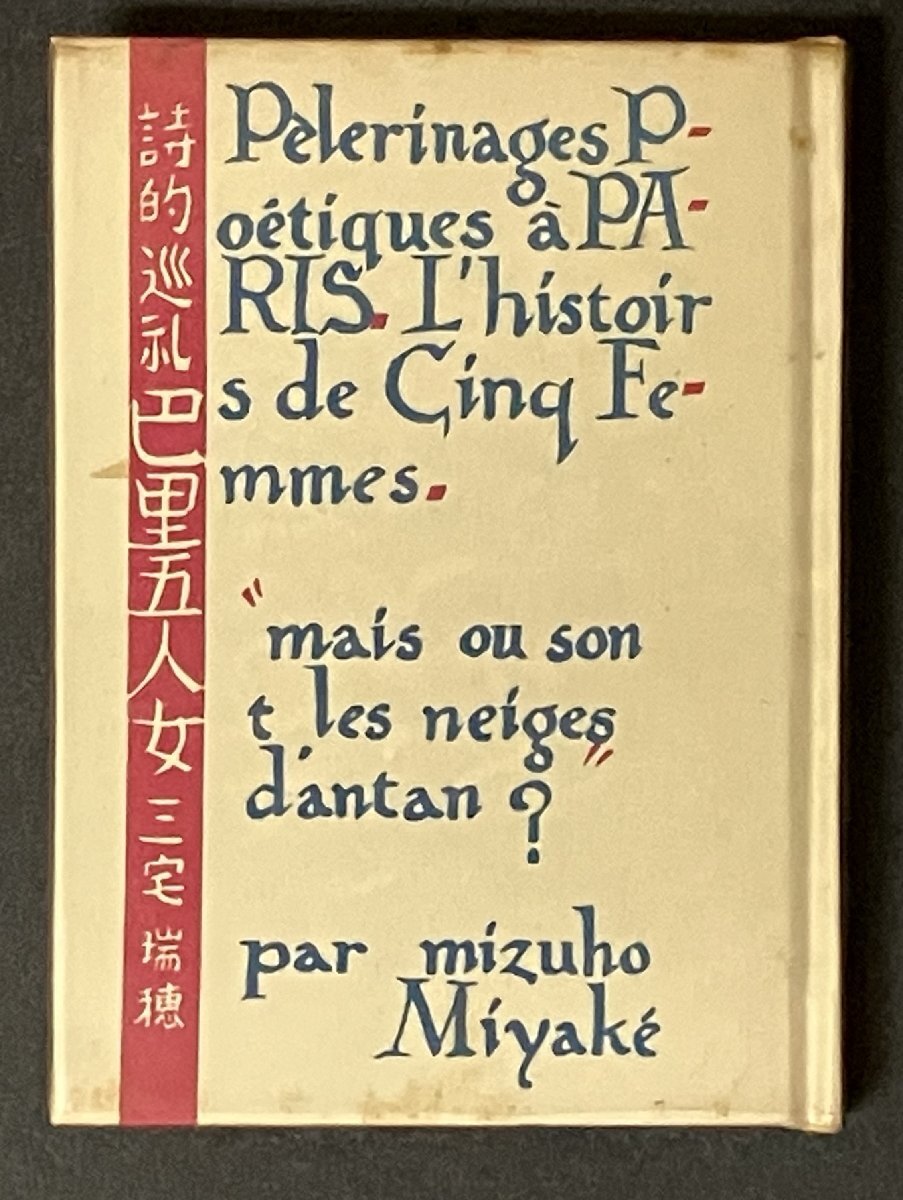 詩的巡礼 巴里五人女 三宅瑞穂
Pèlerinages P-
oétiques à PA-
RIS. L'histoir
s de Cinq Fe-
mmes.
"mais ou son
t les neiges
d'antan ?"
par mizuho
Miyaké